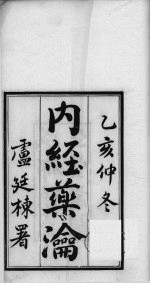 乙亥仲冬
内經藥瀹
盧廷棟署